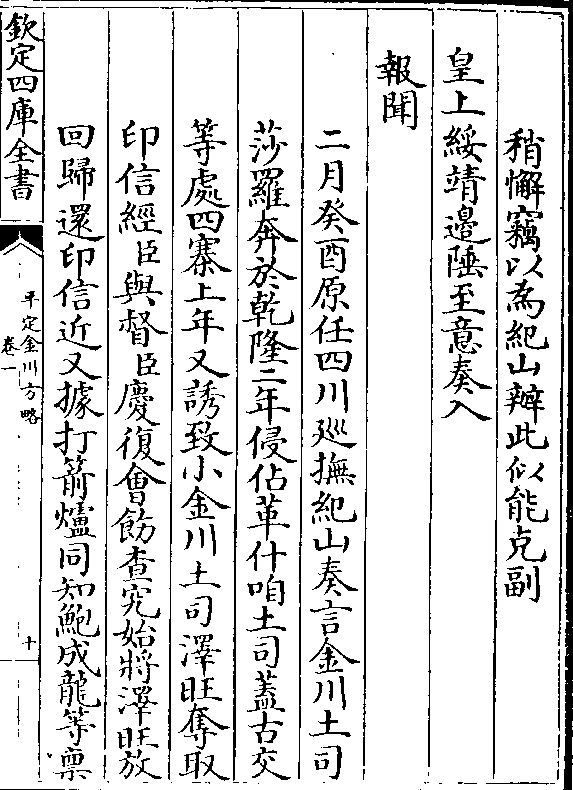 稍懈竊以為紀山辦此似能克副
皇上綏靖邉陲至意奏入
報聞
二月癸酉原任四川廵撫紀山奏言金川土司
莎羅奔於乾隆二年侵佔革什咱土司蓋古交
等處四寨上年又誘致小金川土司澤旺奪取
印信經臣與督臣慶復會飭查究始將澤旺放
回歸還印信近又據打箭爐同知鮑成龍等禀
欽定四庫全書
平定金川方略
卷一
十